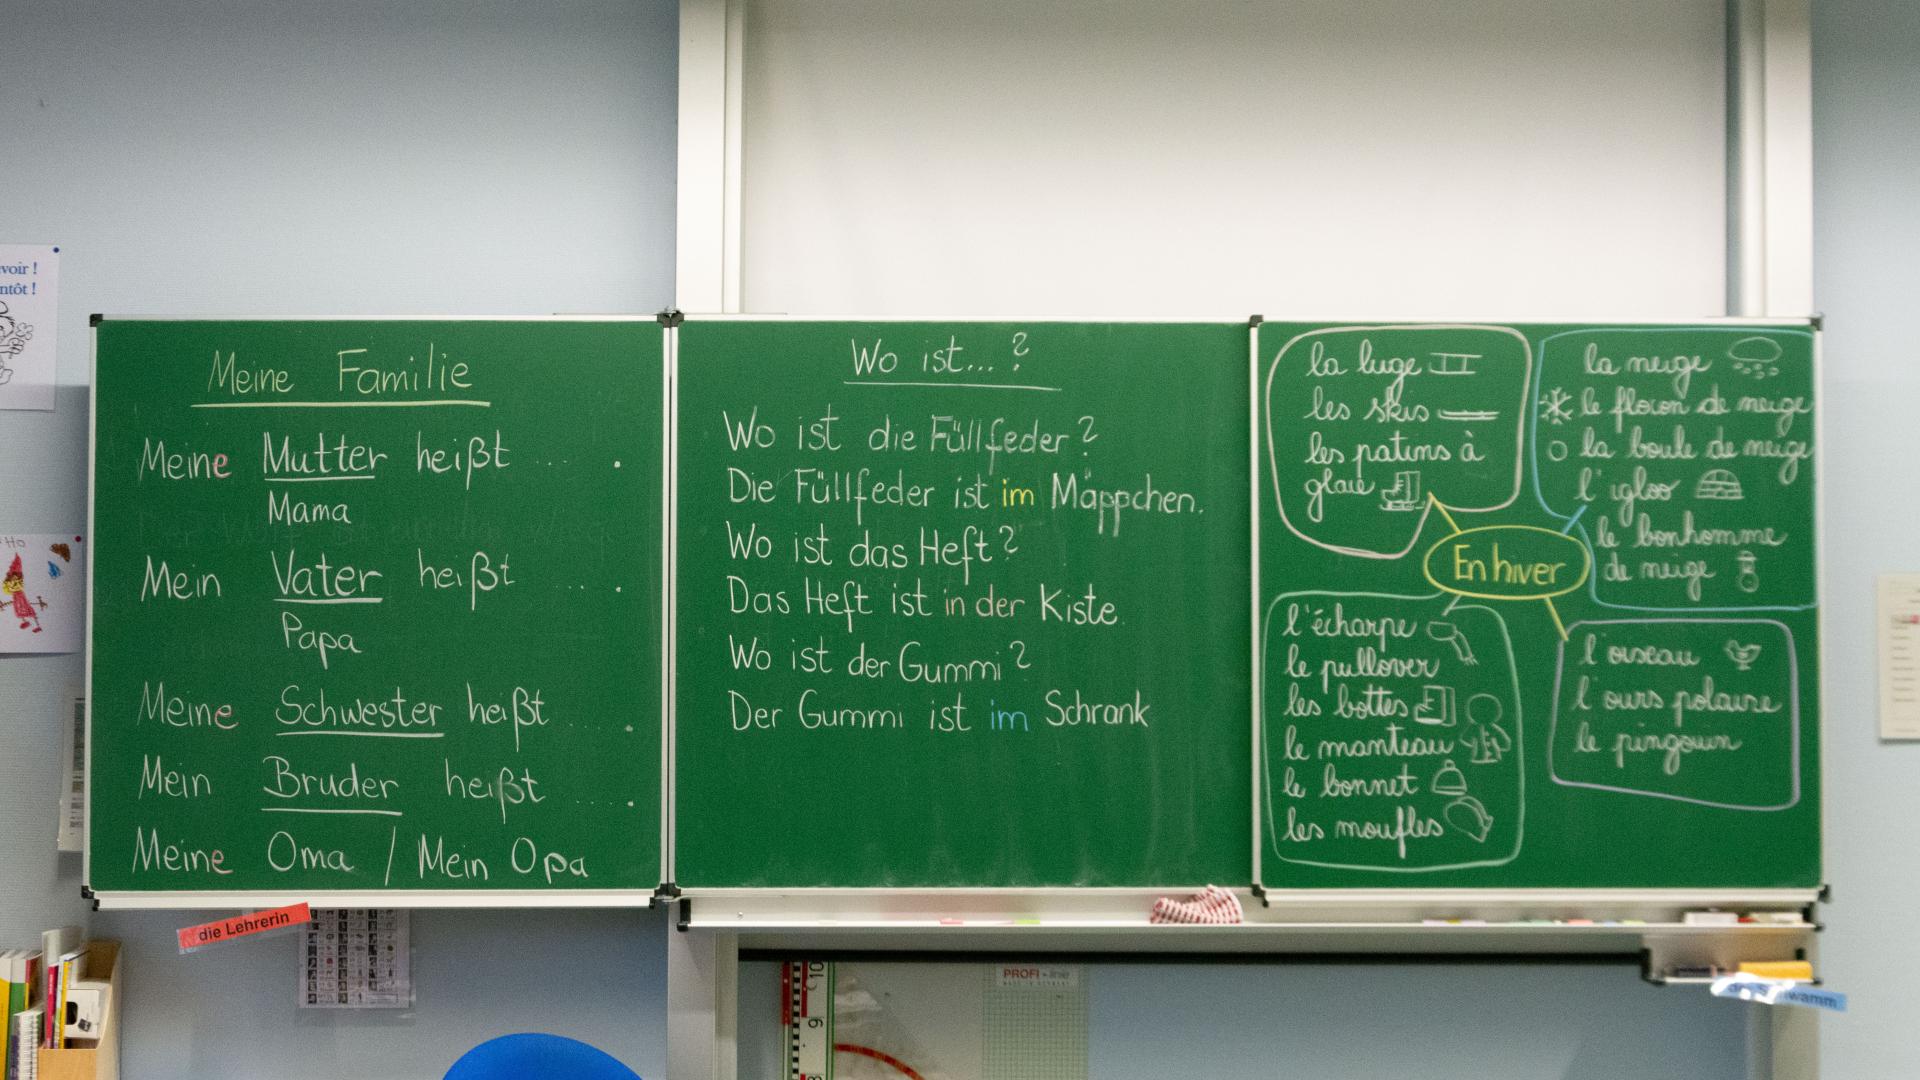 voir !
ntôt !
HO
Meine Familie
Meine Mutter heißt .... .
Mama
Mein Vater heißt .... .
Papa
Meine Schwester heißt .... .
Mein Bruder heißt .... .
Meine Oma / Mein Opa
Wo ist...?
Wo ist die Füllfeder?
Die Füllfeder ist im Mäppchen.
Wo ist das Heft?
Das Heft ist in der Kiste.
Wo ist der Gummi?
Der Gummi ist im Schrank
la luge
les skis
les patins à
glace
la neige
le flocon de neige
la boule de neige
l'igloo
le bonhomme
de neige
En hiver
l'écharpe
le pullover
les bottes
le manteau
le bonnet
les moufles
l'oiseau
l'ours polaire
le pingouin
die Lehrerin
PROFI - line
10
9
8